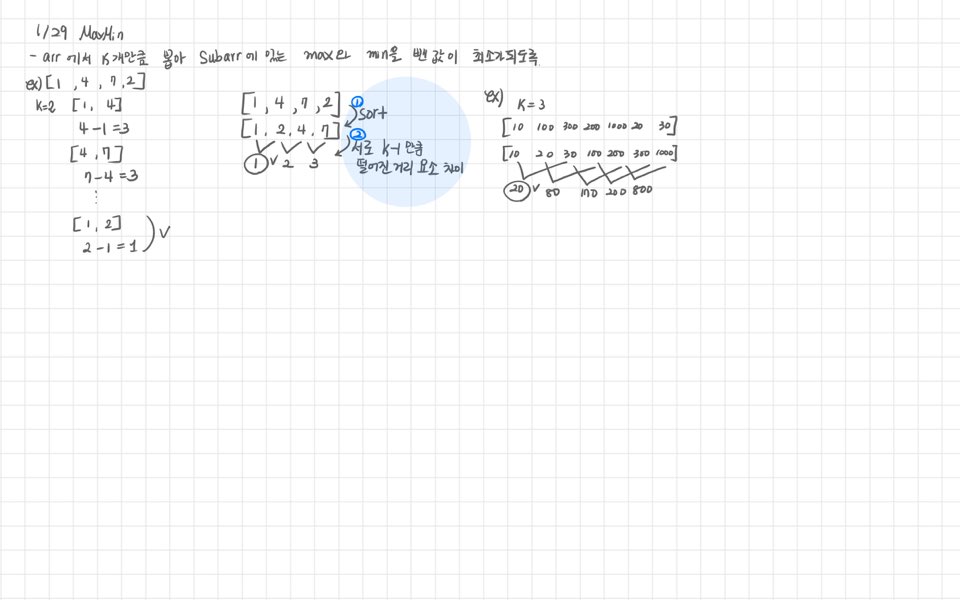 1/29 MaxMin
- arr에서 K개만큼 뽑아 Subarr에 있는 max와 min을 뺀 값이 최소가 되도록
ex) [1, 4, 7, 2]
K=2 [1, 4]
4-1=3
[4, 7]
7-4=3
⋮
[1, 2]
2-1=1
[1, 4, 7, 2]
① sort
[1, 2, 4, 7]
② 서로 K-1만큼
떨어진 거리 요소 차이
1 2 3
ex) K=3
[10 100 300 200 1000 20 30]
[10 20 30 100 200 300 1000]
20 80 170 200 800